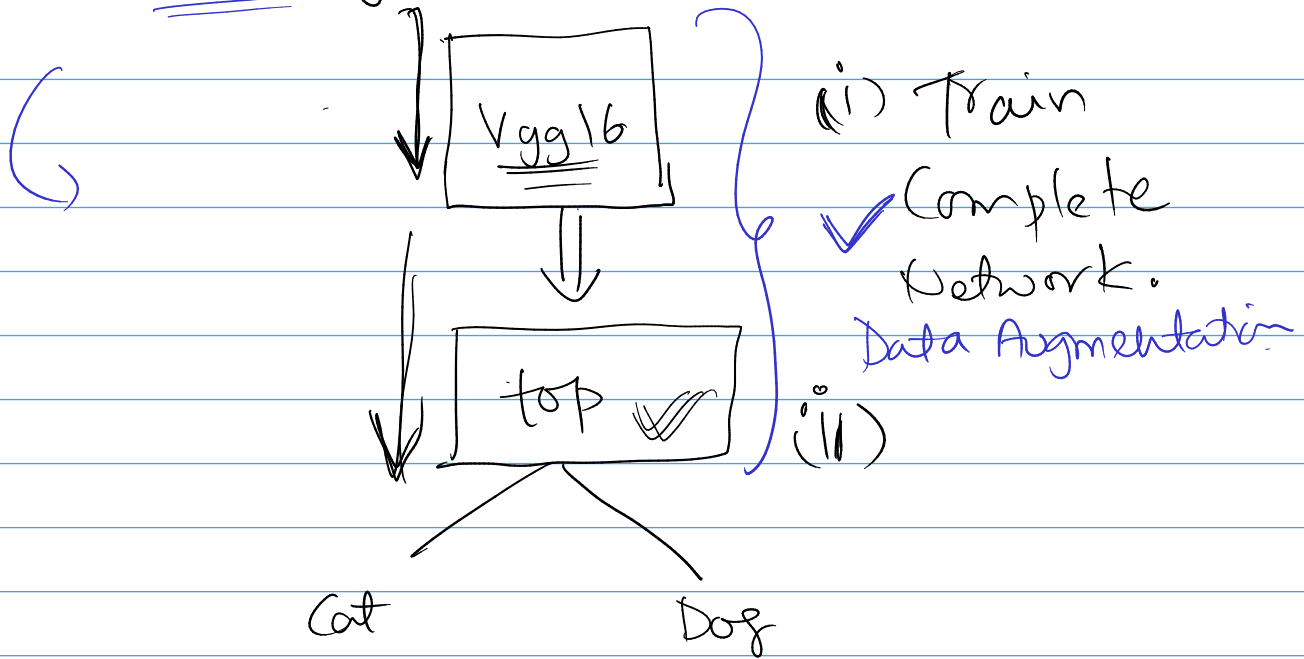 Vgg16
(i) Train
Complete
Network.
Data Augmentation
top
(ii)
Cat
Dog